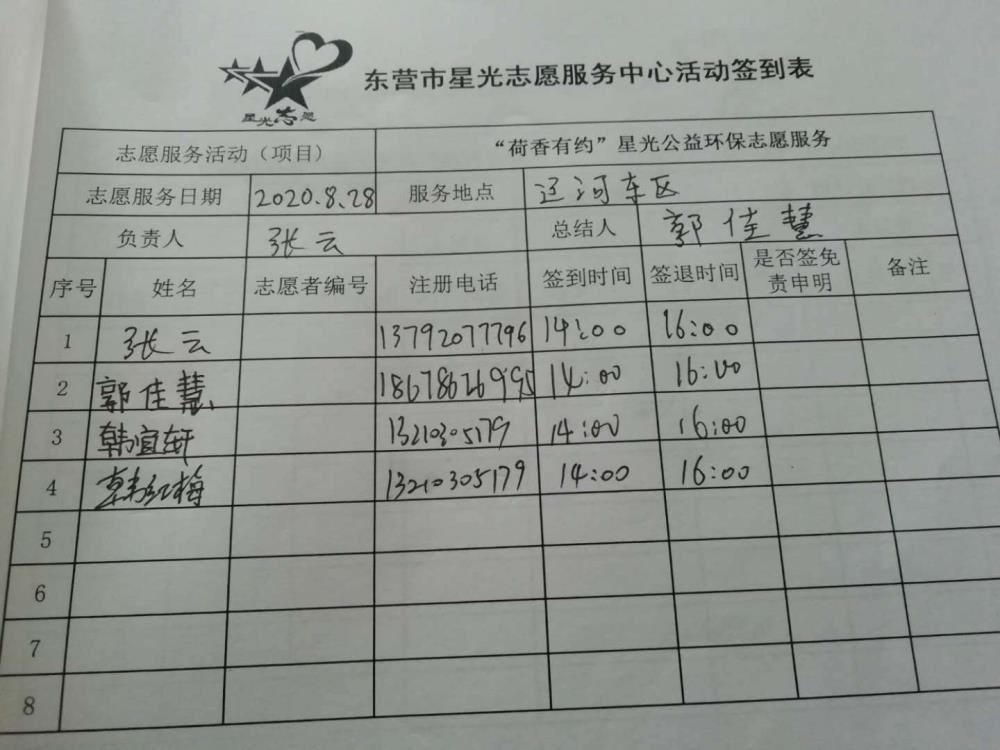 星光志愿
东营市星光志愿服务中心活动签到表
志愿服务活动（项目） “荷香有约”星光公益环保志愿服务
志愿服务日期 2020.8.28 服务地点 辽河东区
负责人 张云 总结人 郭佳慧
序号 姓名 志愿者编号 注册电话 签到时间 签退时间 是否签免 备注
责申明
1 张云 13792077796 14:00 16:00
2 郭佳慧 18678626995 14:00 16:00
3 韩宜轩 13210305179 14:00 16:00
4 韩红梅 13210305179 14:00 16:00
5
6
7
8